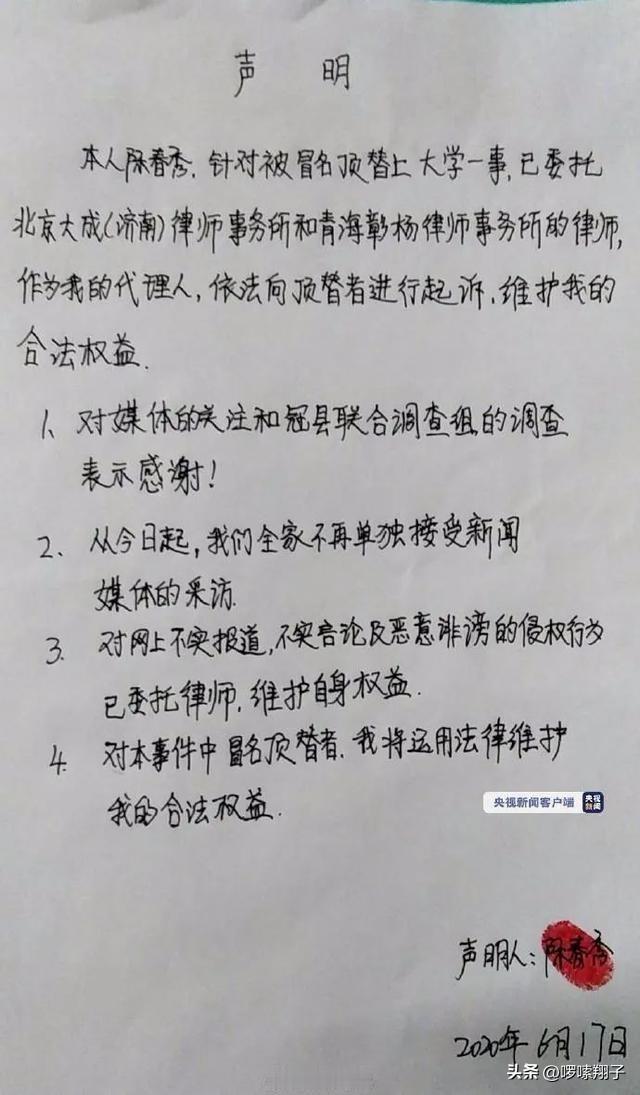 声 明
本人陈春秀，针对被冒名顶替上大学一事，已委托
北京大成（济南）律师事务所和青海彰杨律师事务所的律师，
作为我的代理人，依法向顶替者进行起诉，维护我的
合法权益．
1、对媒体的关注和冠县联合调查组的调查
表示感谢！
2、从今日起，我们全家不再单独接受新闻
媒体的采访．
3．对网上不实报道，不实言论及恶意诽谤的侵权行为
已委托律师，维护自身权益．
4．对本事件中冒名顶替者，我将运用法律维护
我的合法权益．
央视新闻客户端 央视新闻
声明人：陈春秀
2020年6月17日
头条@啰嗦翔子